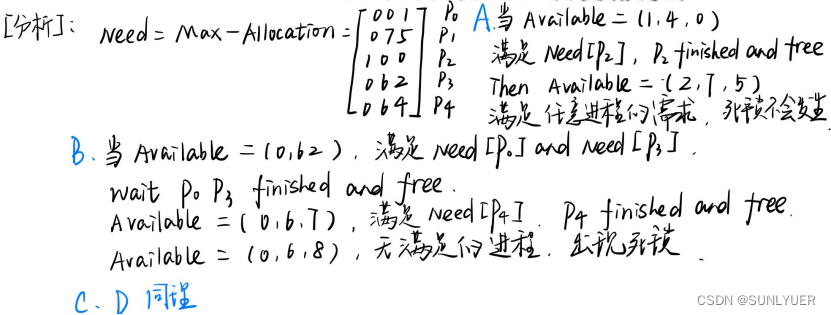 [分析]: Need = Max-Allocation = [001 P0
075 P1
100 P2
062 P3
064] P4
A.当 Available = (1,4,0)
满足 Need[P2], P2 finished and free
Then Available = (2,7,5)
满足任意进程的需求,死锁不会发生
B.当 Available = (0,62),满足 Need[P0] and Need[P3].
wait P0 P3 finished and free.
Available = (0,6,7),满足 Need[P4]. P4 finished and free.
Available = (0,6,8),无满足的进程.出现死锁.
C、D 同理
CSDN @SUNLYUER